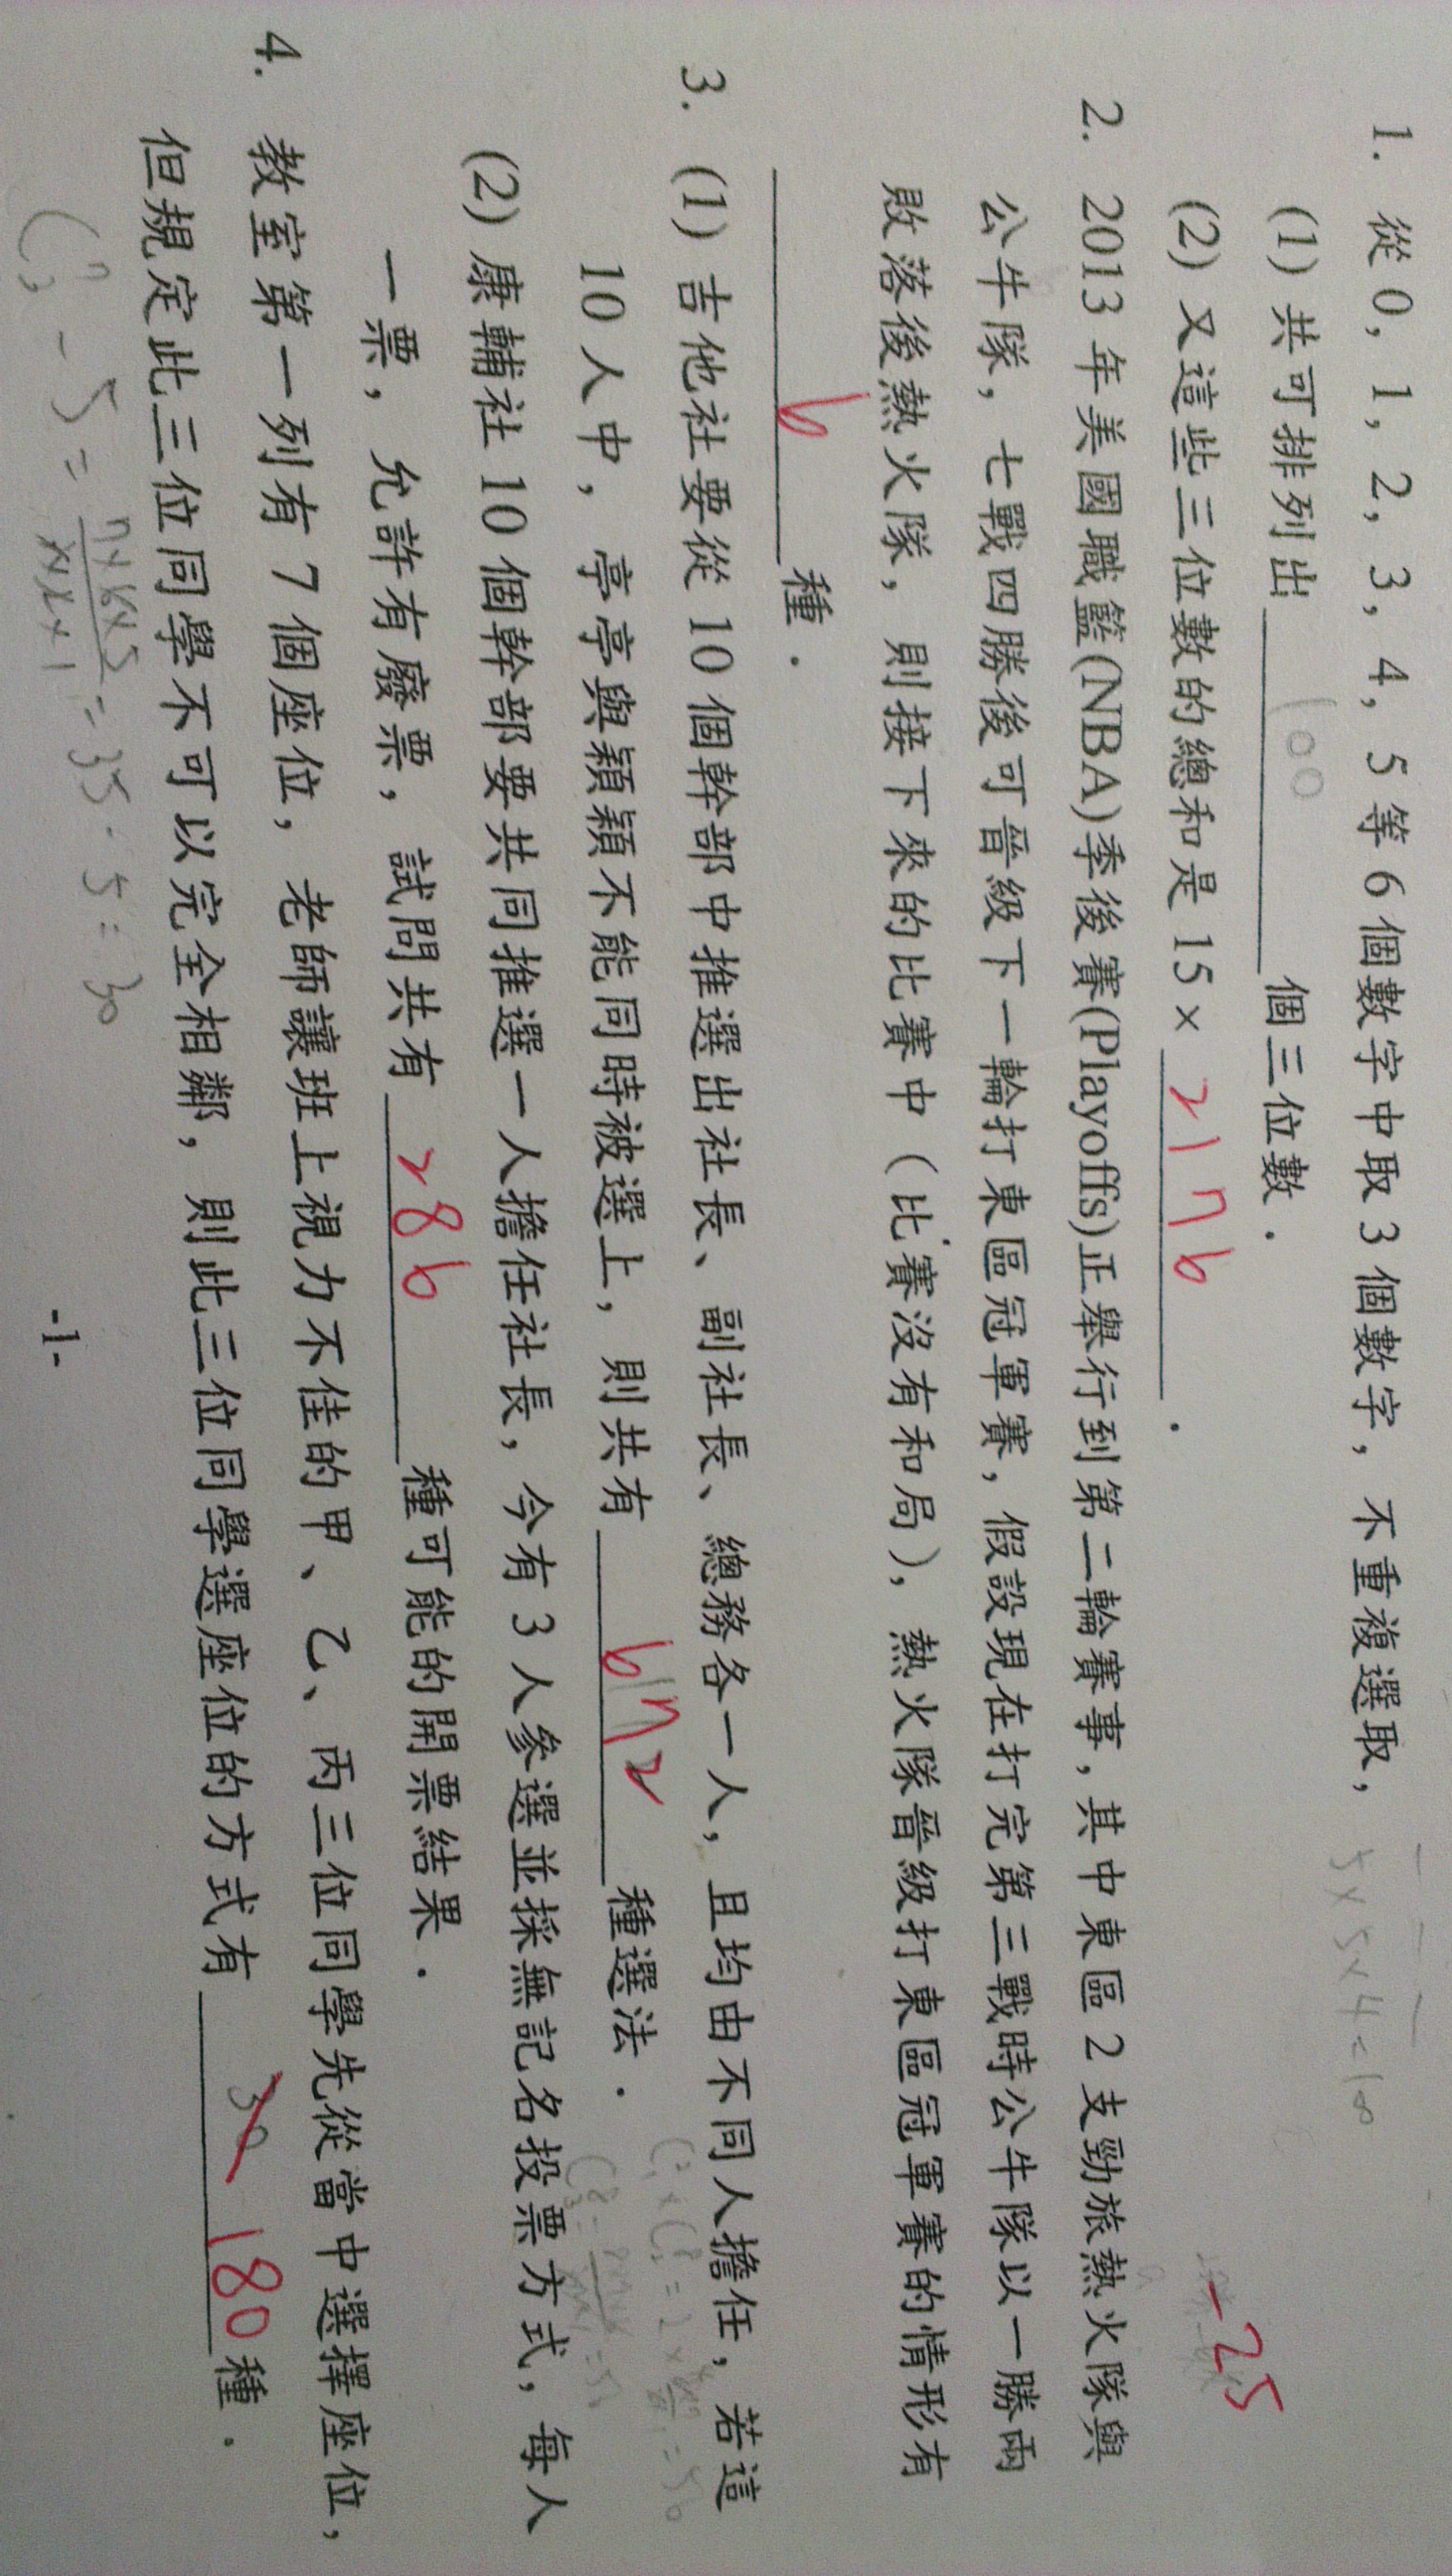 1. 從 0, 1, 2, 3, 4, 5 等 6 個數字中取 3 個數字, 不重複選取,
5×5×4=100
(1) 共可排列出 100 個三位數.
(2) 又這些三位數的總和是 15× 2176 .
-25
2. 2013 年美國職籃(NBA)季後賽(Playoffs)正舉行到第二輪賽事, 其中東區 2 支勁旅熱火隊與
公牛隊, 七戰四勝後可晉級下一輪打東區冠軍賽, 假設現在打完第三戰時公牛隊以一勝兩
敗落後熱火隊, 則接下來的比賽中 (比賽沒有和局), 熱火隊晉級打東區冠軍賽的情形有
6 種.
3. (1) 吉他社要從 10 個幹部中推選出社長、副社長、總務各一人, 且均由不同人擔任, 若這
10 人中, 亭亭與穎穎不能同時被選上, 則共有 672 種選法.
(2) 康輔社 10 個幹部要共同推選一人擔任社長, 今有 3 人參選並採無記名投票方式, 每人
一票, 允許有廢票, 試問共有 286 種可能的開票結果.
4. 教室第一列有 7 個座位, 老師讓班上視力不佳的甲、乙、丙三位同學先從當中選擇座位,
但規定此三位同學不可以完全相鄰, 則此三位同學選座位的方式有 30 180 種.
C⁷₃ - 5 = 7×6×5 / 3×2×1 = 35 - 5 = 30
-1-